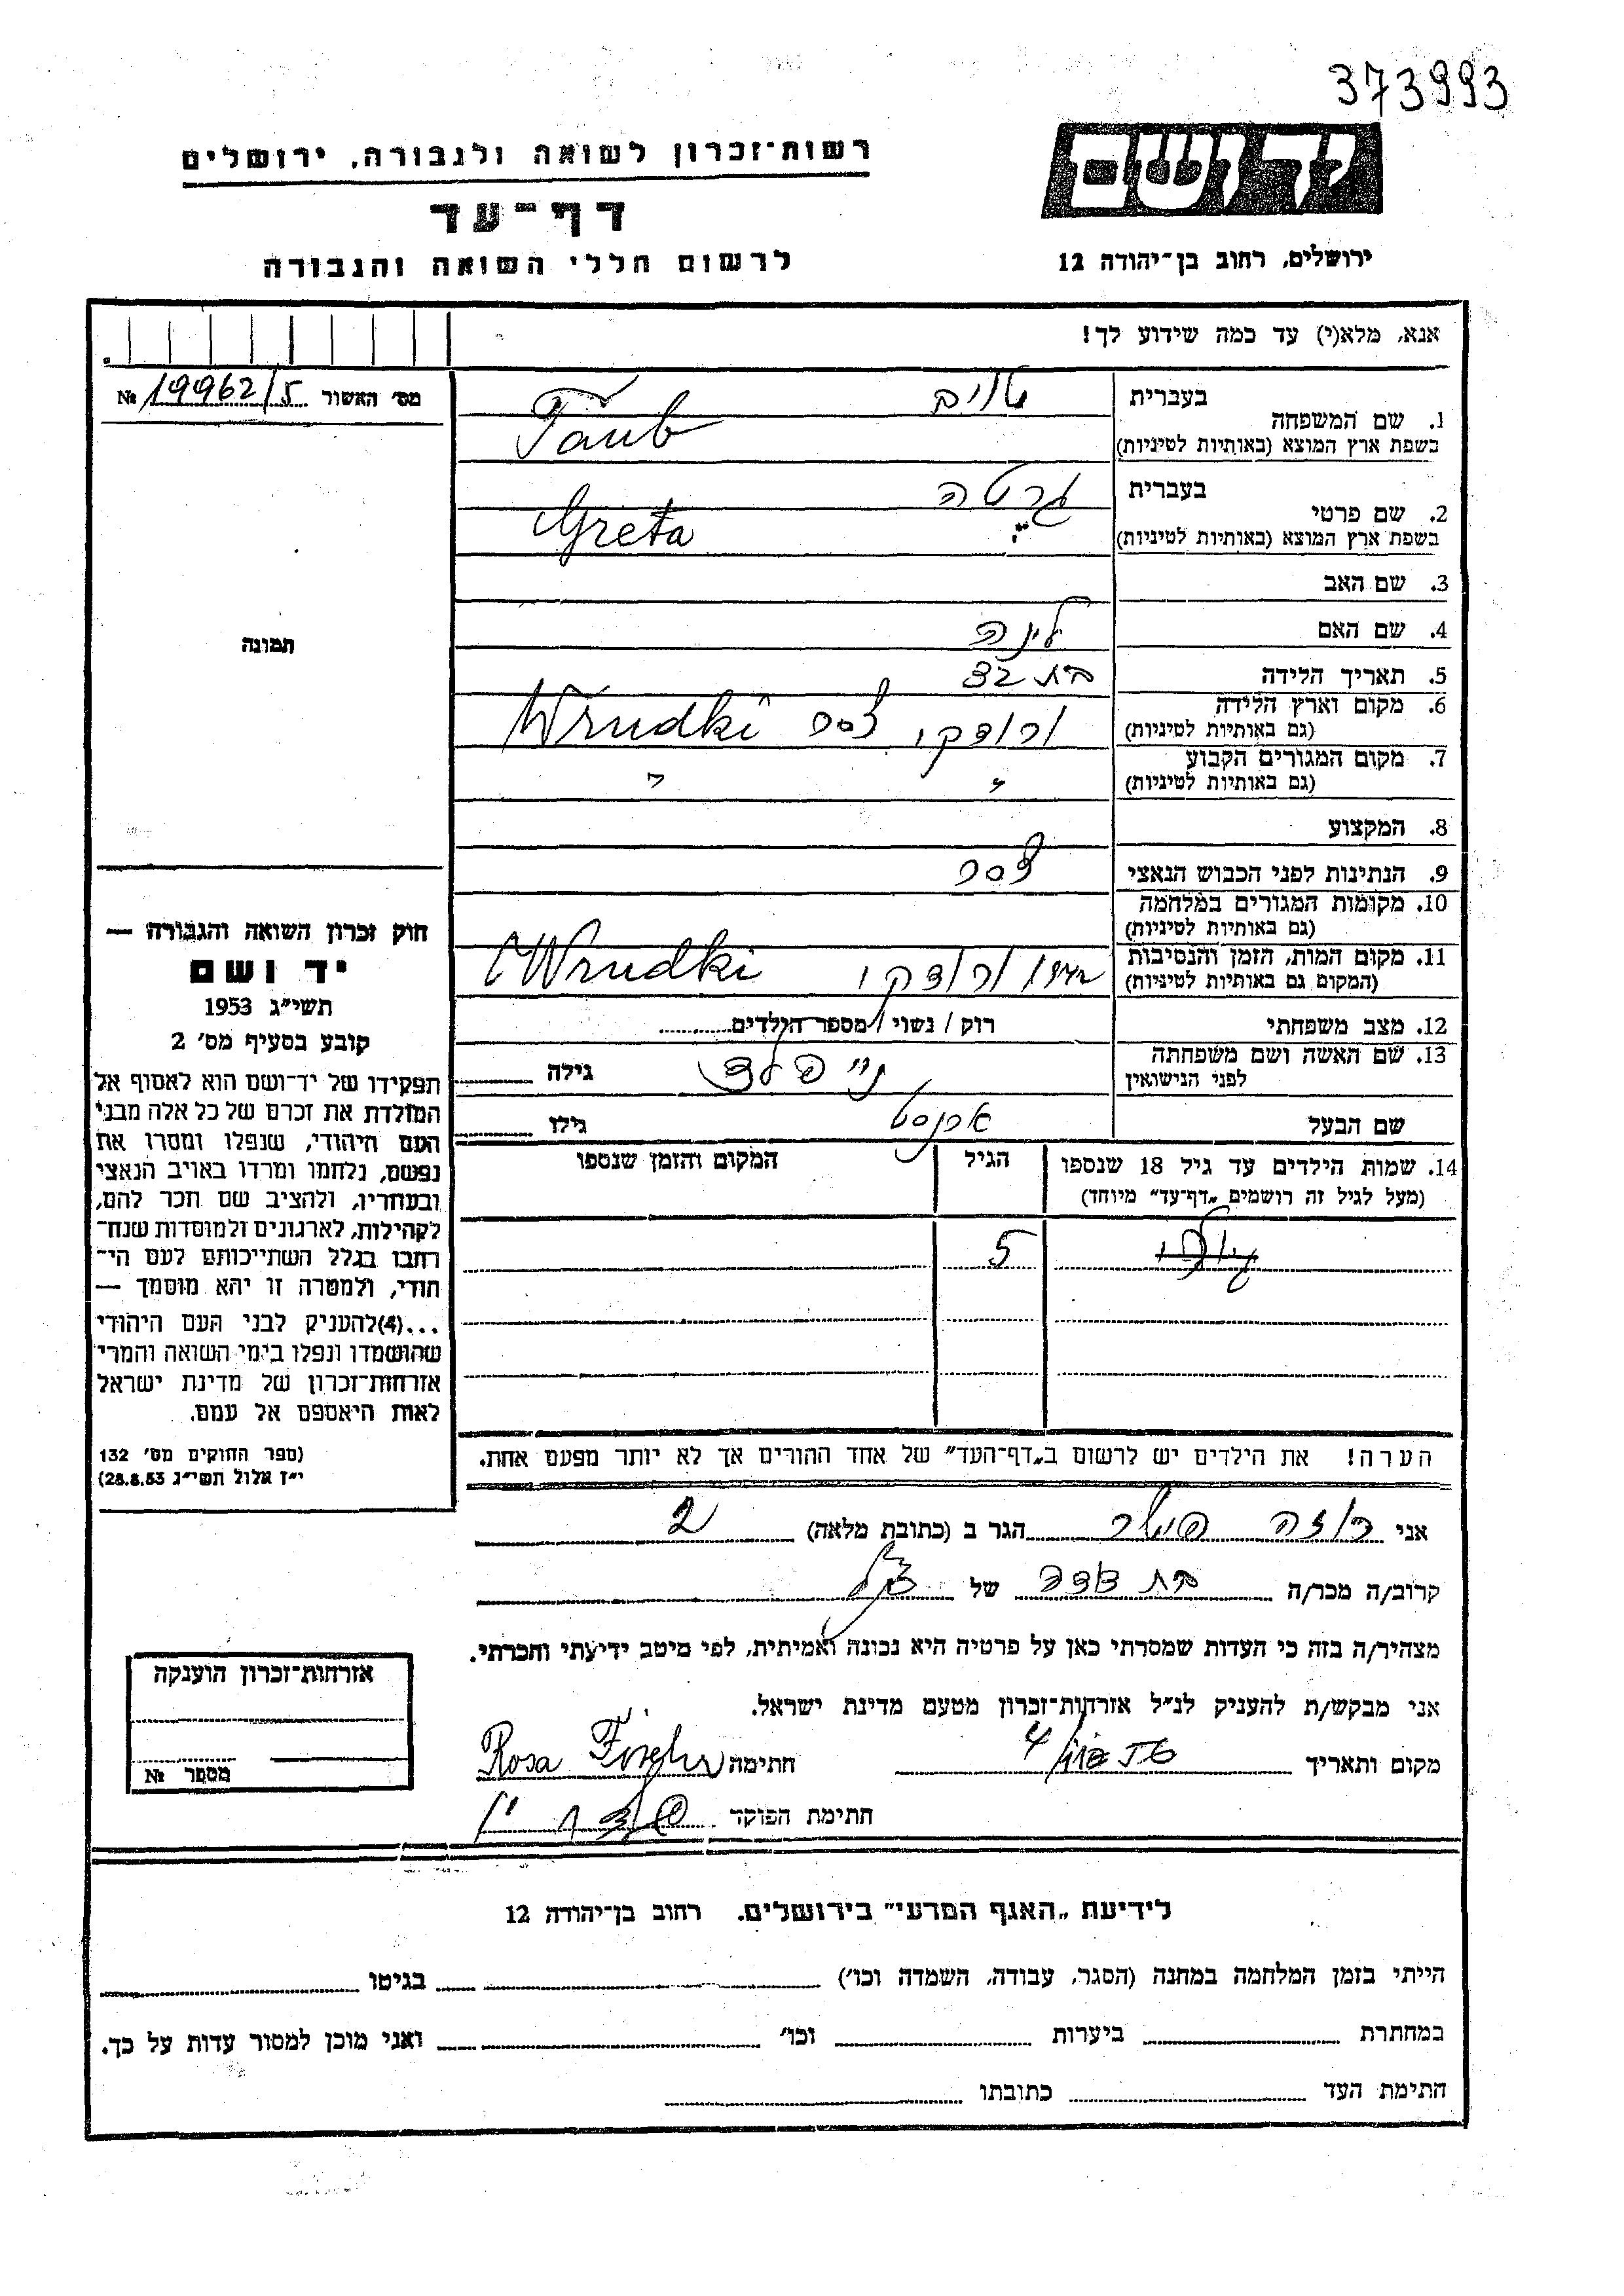 373993
יד ושם
רשות־זכרון לשואה ולגבורה, ירושלים
דף־עד
ירושלים, רחוב בן־יהודה 12
לרשום חללי השואה והגבורה
אנא, מלא(י) עד כמה שידוע לך!
מס׳ האשור 19962/5 №
תמונה
חוק זכרון השואה והגבורה —
יד ושם
תשי״ג 1953
קובע בסעיף מס׳ 2
תפקידו של יד־ושם הוא לאסוף אל
המולדת את זכרם של כל אלה מבני
העם היהודי, שנפלו ומסרו את
נפשם, נלחמו ומרדו באויב הנאצי
ובעוזריו, ולהציב שם וזכר להם,
לקהילות, לארגונים ולמוסדות שנח־
רבו בגלל השתייכותם לעם הי־
הודי, ולמטרה זו יהא מוסמך —
...(4)להעניק לבני העם היהודי
שהושמדו ונפלו בימי השואה והמרי
אזרחות־זכרון של מדינת ישראל
לאות היאספם אל עמם.
(ספר החוקים מס׳ 132
י״ז אלול תשי״ג 28.8.53)
1. שם המשפחה
בעברית טויב
בשפת ארץ המוצא (באותיות לטיניות) Taub
2. שם פרטי
בעברית גרטה
בשפת ארץ המוצא (באותיות לטיניות) Greta
3. שם האב
4. שם האם לינה
5. תאריך הלידה בת 32
6. מקום וארץ הלידה
(גם באותיות לטיניות) ורודקי Wrudki
7. מקום המגורים הקבוע
(גם באותיות לטיניות) " "
8. המקצוע
9. הנתינות לפני הכבוש הנאצי
10. מקומות המגורים במלחמה
(גם באותיות לטיניות)
11. מקום המות, הזמן והנסיבות
(המקום גם באותיות לטיניות) ורודקי Wrudki
12. מצב משפחתי רוק / נשוי / מספר הילדים
13. שם האשה ושם משפחתה
לפני הנישואין גילה
שם הבעל ארנסט גילו
14. שמות הילדים עד גיל 18 שנספו הגיל המקום והזמן שנספו
(מעל לגיל זה רושמים „דף־עד״ מיוחד)
5
הערה! את הילדים יש לרשום ב„דף־העד״ של אחד ההורים אך לא יותר מפעם אחת.
אני רוזה פישר הגר ב (כתובת מלאה)
קרוב/ה מכר/ה בת דודה של
מצהיר/ה בזה כי העדות שמסרתי כאן על פרטיה היא נכונה ואמיתית, לפי מיטב ידיעתי והכרתי.
אני מבקש/ת להעניק לנ״ל אזרחות־זכרון מטעם מדינת ישראל.
מקום ותאריך חתימה Rosa Fischer
חתימת הפוקד
אזרחות־זכרון הוענקה
מספר №
לידיעת „האגף המדעי״ בירושלים. רחוב בן־יהודה 12
הייתי בזמן המלחמה במחנה (הסגר, עבודה, השמדה וכו׳) בגיטו
במחתרת ביערות וכו׳ ואני מוכן למסור עדות על כך.
חתימת העד כתובתו